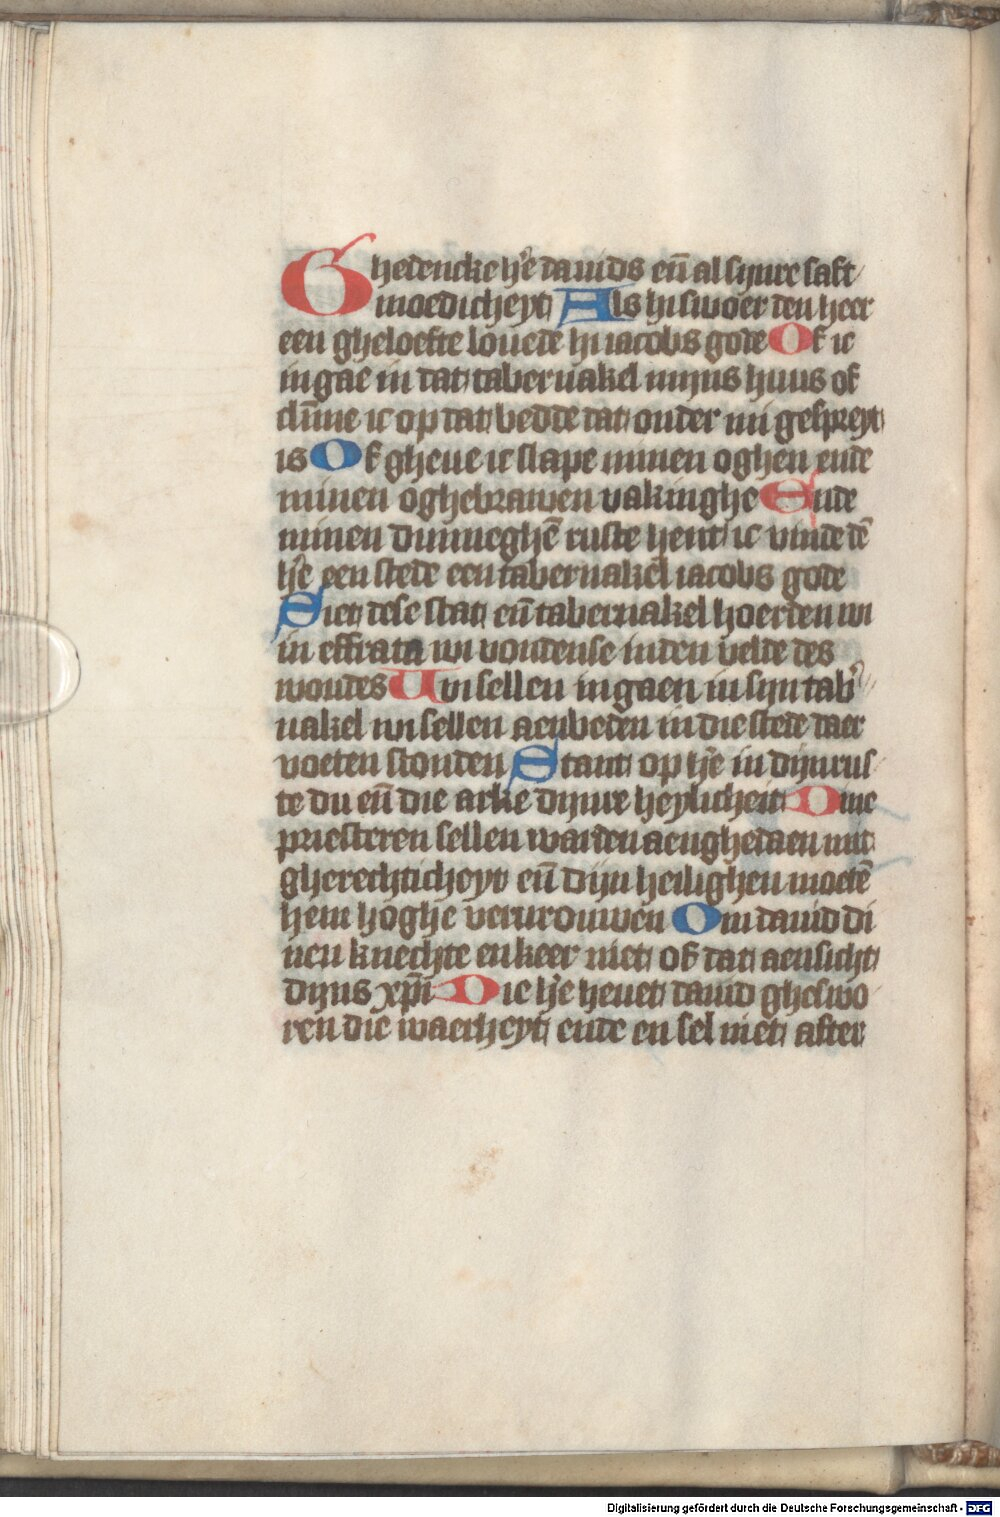 Ghedencke he͛ dauids en̄ al sijnre saft/
moedicheyt Als hi swoer den heer
een gheloefte louede hi iacobs gode Of ic
ingae in dat tabernakel mijns huus of
clīme ic op dat bedde dat onder mi gespreyt
is Of gheue ic slape minen oghen ende
minen oghebrawen vakinghe Ende
minen dinnieghē ruste hent ic vinde dē
he͛ een stede een tabernakel iacobs gode
Siet dese stat en̄ tabernakel hoerden wi
in effrata wi vondense inden velde des
woudes Wi sellen ingaen in sijn tab͛//
nakel wi sellen aenbeden in die stede daer
voeten stonden Stant op he͛ in dijn rus/
te du en̄ die arke dijnre heylicheit Dine
priesteren sellen warden aenghedaen mit
gherechticheyt en̄ dijn heilighen moetē
hem hoghe vervrouwen Om dauid di
nen knechte en keer niet of dat aensicht
dijns xp̄i Die he͛ heuet dauid gheswo
ren die waerheyt ende en sel niet after
Digitalisierung gefördert durch die Deutsche Forschungsgemeinschaft - DFG